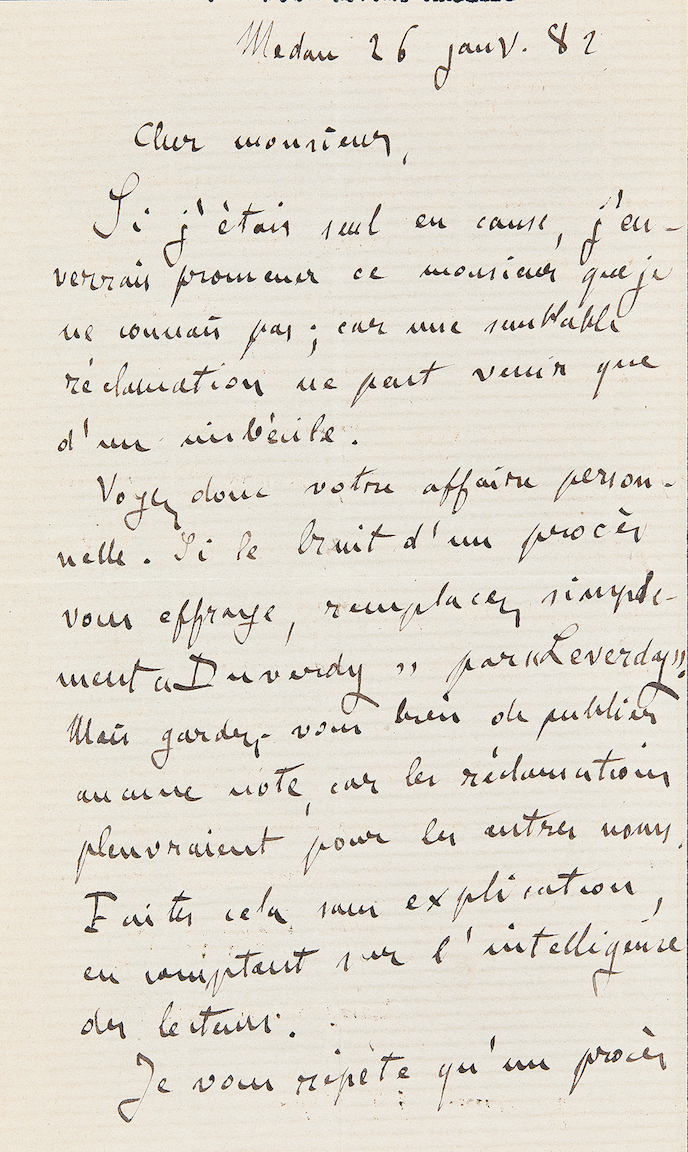 Medan 26 janv. 82
Cher monsieur,
Si j'étais seul en cause, j'en-
verrais promener ce monsieur que je
ne connais pas ; car une semblable
réclamation ne peut venir que
d'un imbécile.
Voyez donc votre affaire person-
nelle. Si le bruit d'un procès
vous effraye, remplacez simple-
ment « Duverdy » par « Leverdy ».
Mais gardez-vous bien de publier
aucune note, car les réclamations
pleuvraient pour les autres noms.
Faites cela sans explication,
en comptant sur l'intelligence
des lecteurs.
Je vous répète qu'un procès